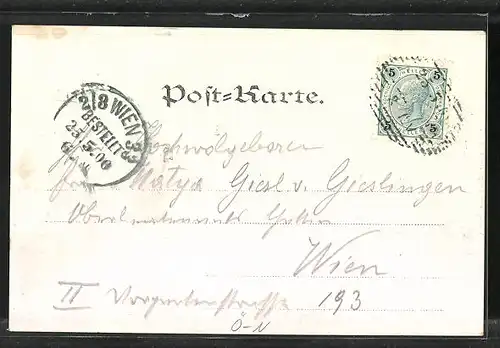 5 5
5 5
Post=Karte.
2/8 WIEN
BESTELLT
25 5.00
Hochwolgeboren
Frau Matya Giesl v. Gieslingen
Oberleutenants Gattin
Wien
II Vorgartenstrasse 193
Ö-N